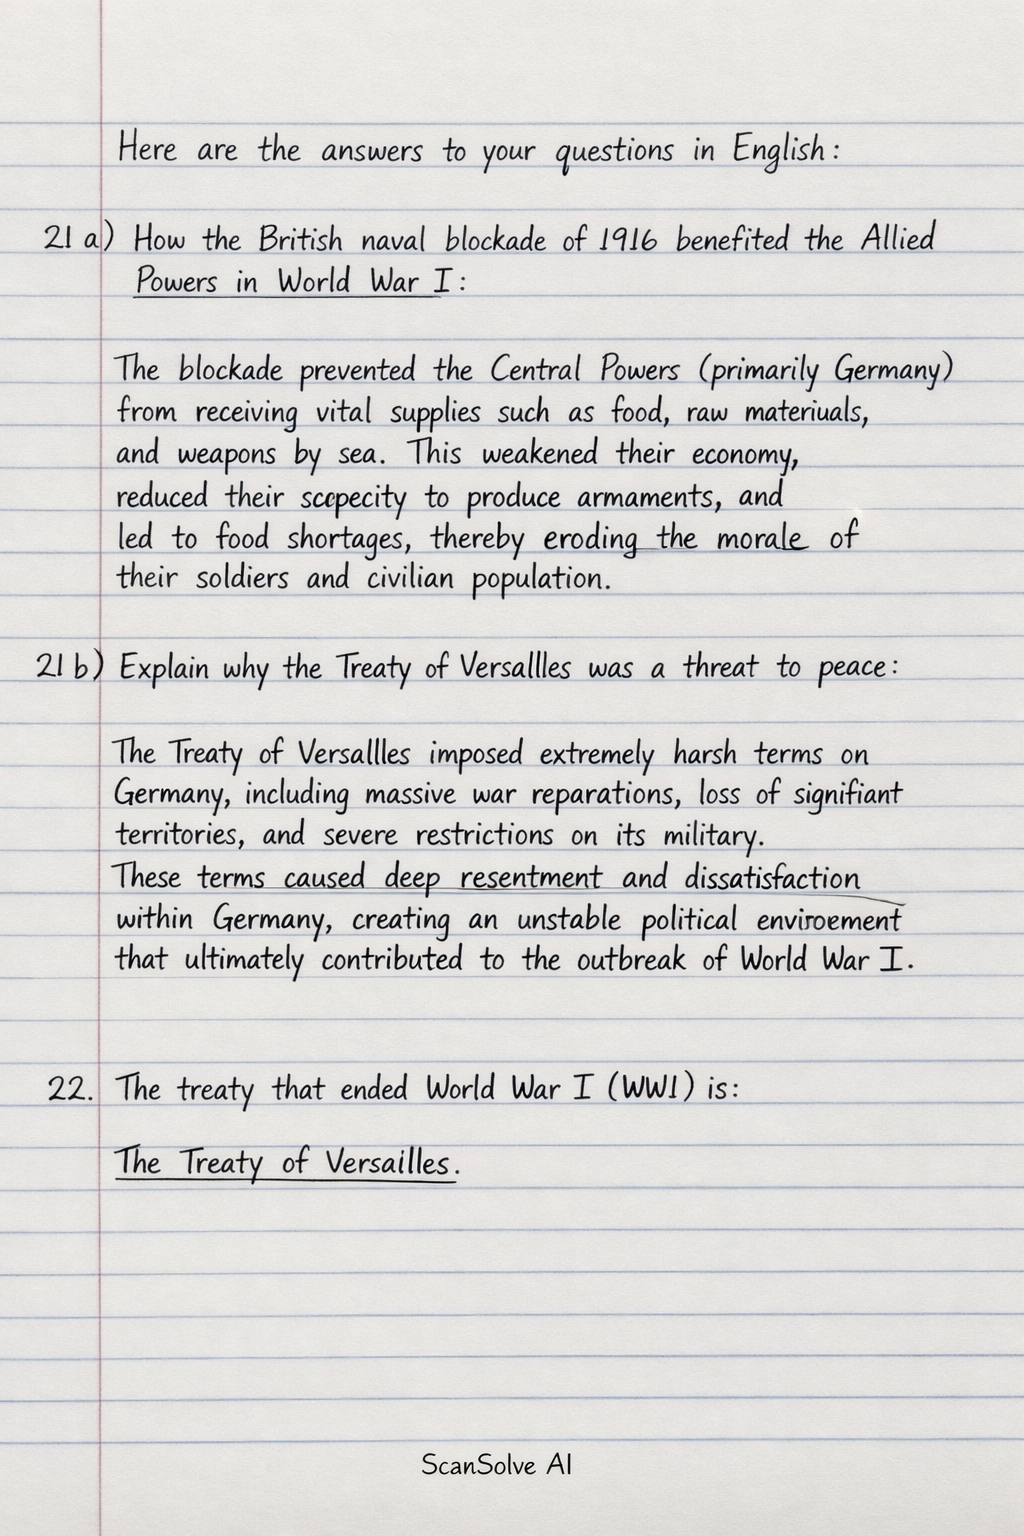 Here are the answers to your questions in English:
21 a) How the British naval blockade of 1916 benefited the Allied
Powers in World War I:
The blockade prevented the Central Powers (primarily Germany)
from receiving vital supplies such as food, raw materiuals,
and weapons by sea. This weakened their economy,
reduced their scepecity to produce armaments, and
led to food shortages, thereby eroding the morale of
their soldiers and civilian population.
21 b) Explain why the Treaty of Versallles was a threat to peace:
The Treaty of Versallles imposed extremely harsh terms on
Germany, including massive war reparations, loss of signifiant
territories, and severe restrictions on its military.
These terms caused deep resentment and dissatisfaction
within Germany, creating an unstable political enviroement
that ultimately contributed to the outbreak of World War I.
22. The treaty that ended World War I (WW1) is:
The Treaty of Versailles.
ScanSolve AI